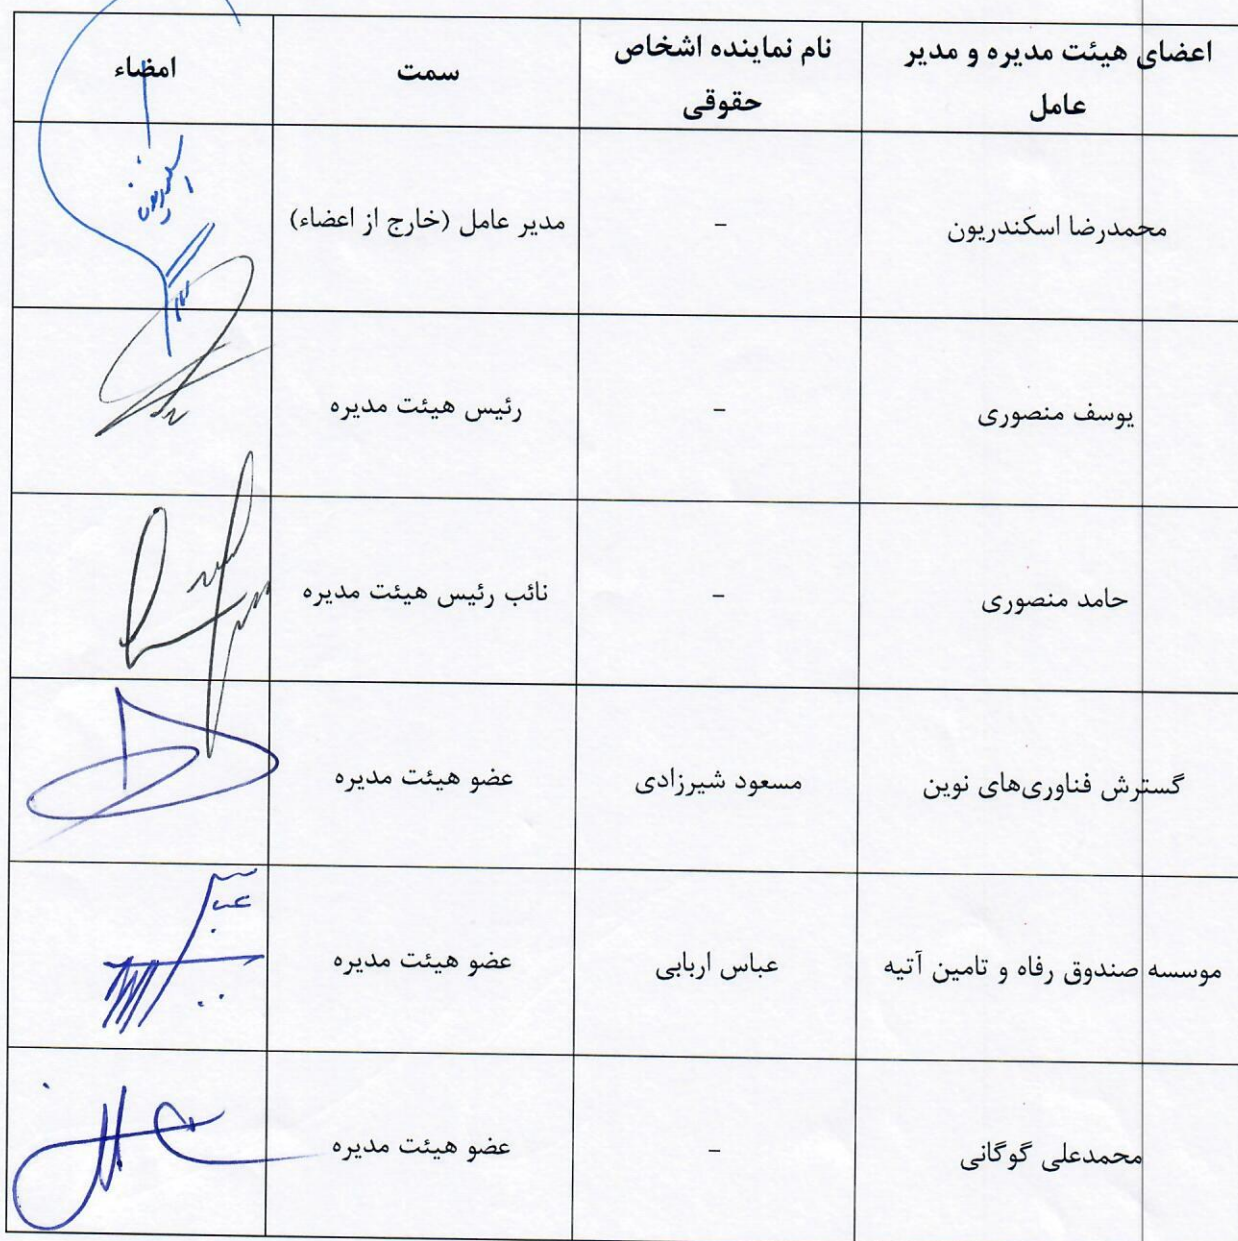 اعضای هیئت مدیره و مدیر عامل
نام نماینده اشخاص حقوقی
سمت
امضاء
محمدرضا اسکندریون
–
مدیر عامل (خارج از اعضاء)
یوسف منصوری
–
رئیس هیئت مدیره
حامد منصوری
–
نائب رئیس هیئت مدیره
گسترش فناوری‌های نوین
مسعود شیرزادی
عضو هیئت مدیره
موسسه صندوق رفاه و تامین آتیه
عباس اربابی
عضو هیئت مدیره
محمدعلی گوگانی
–
عضو هیئت مدیره